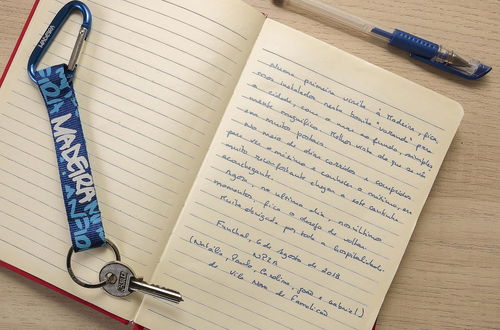 MADEIRA
MADEIRA
Numa primeira visita à Madeira, fica-
mos instalados nesta bonita e varanda para
a cidade, com o mar ao fundo, simples-
mente magnífico. Melhor vista do que se vê
em muitos postais.
No meio de dias corridos e compridos
para ver o máximo e conhecer o máximo, era
muito reconfortante chegar a este cantinho
aconchegante.
Agora, no último dia, nos últimos
momentos, fica o desejo de voltar.
Muito obrigada por toda a hospitalidade.
Funchal, 6 de Agosto de 2018
(Natália, Paulo, Carolina, João e Gabriel)
de Vila Nova de Famalicão